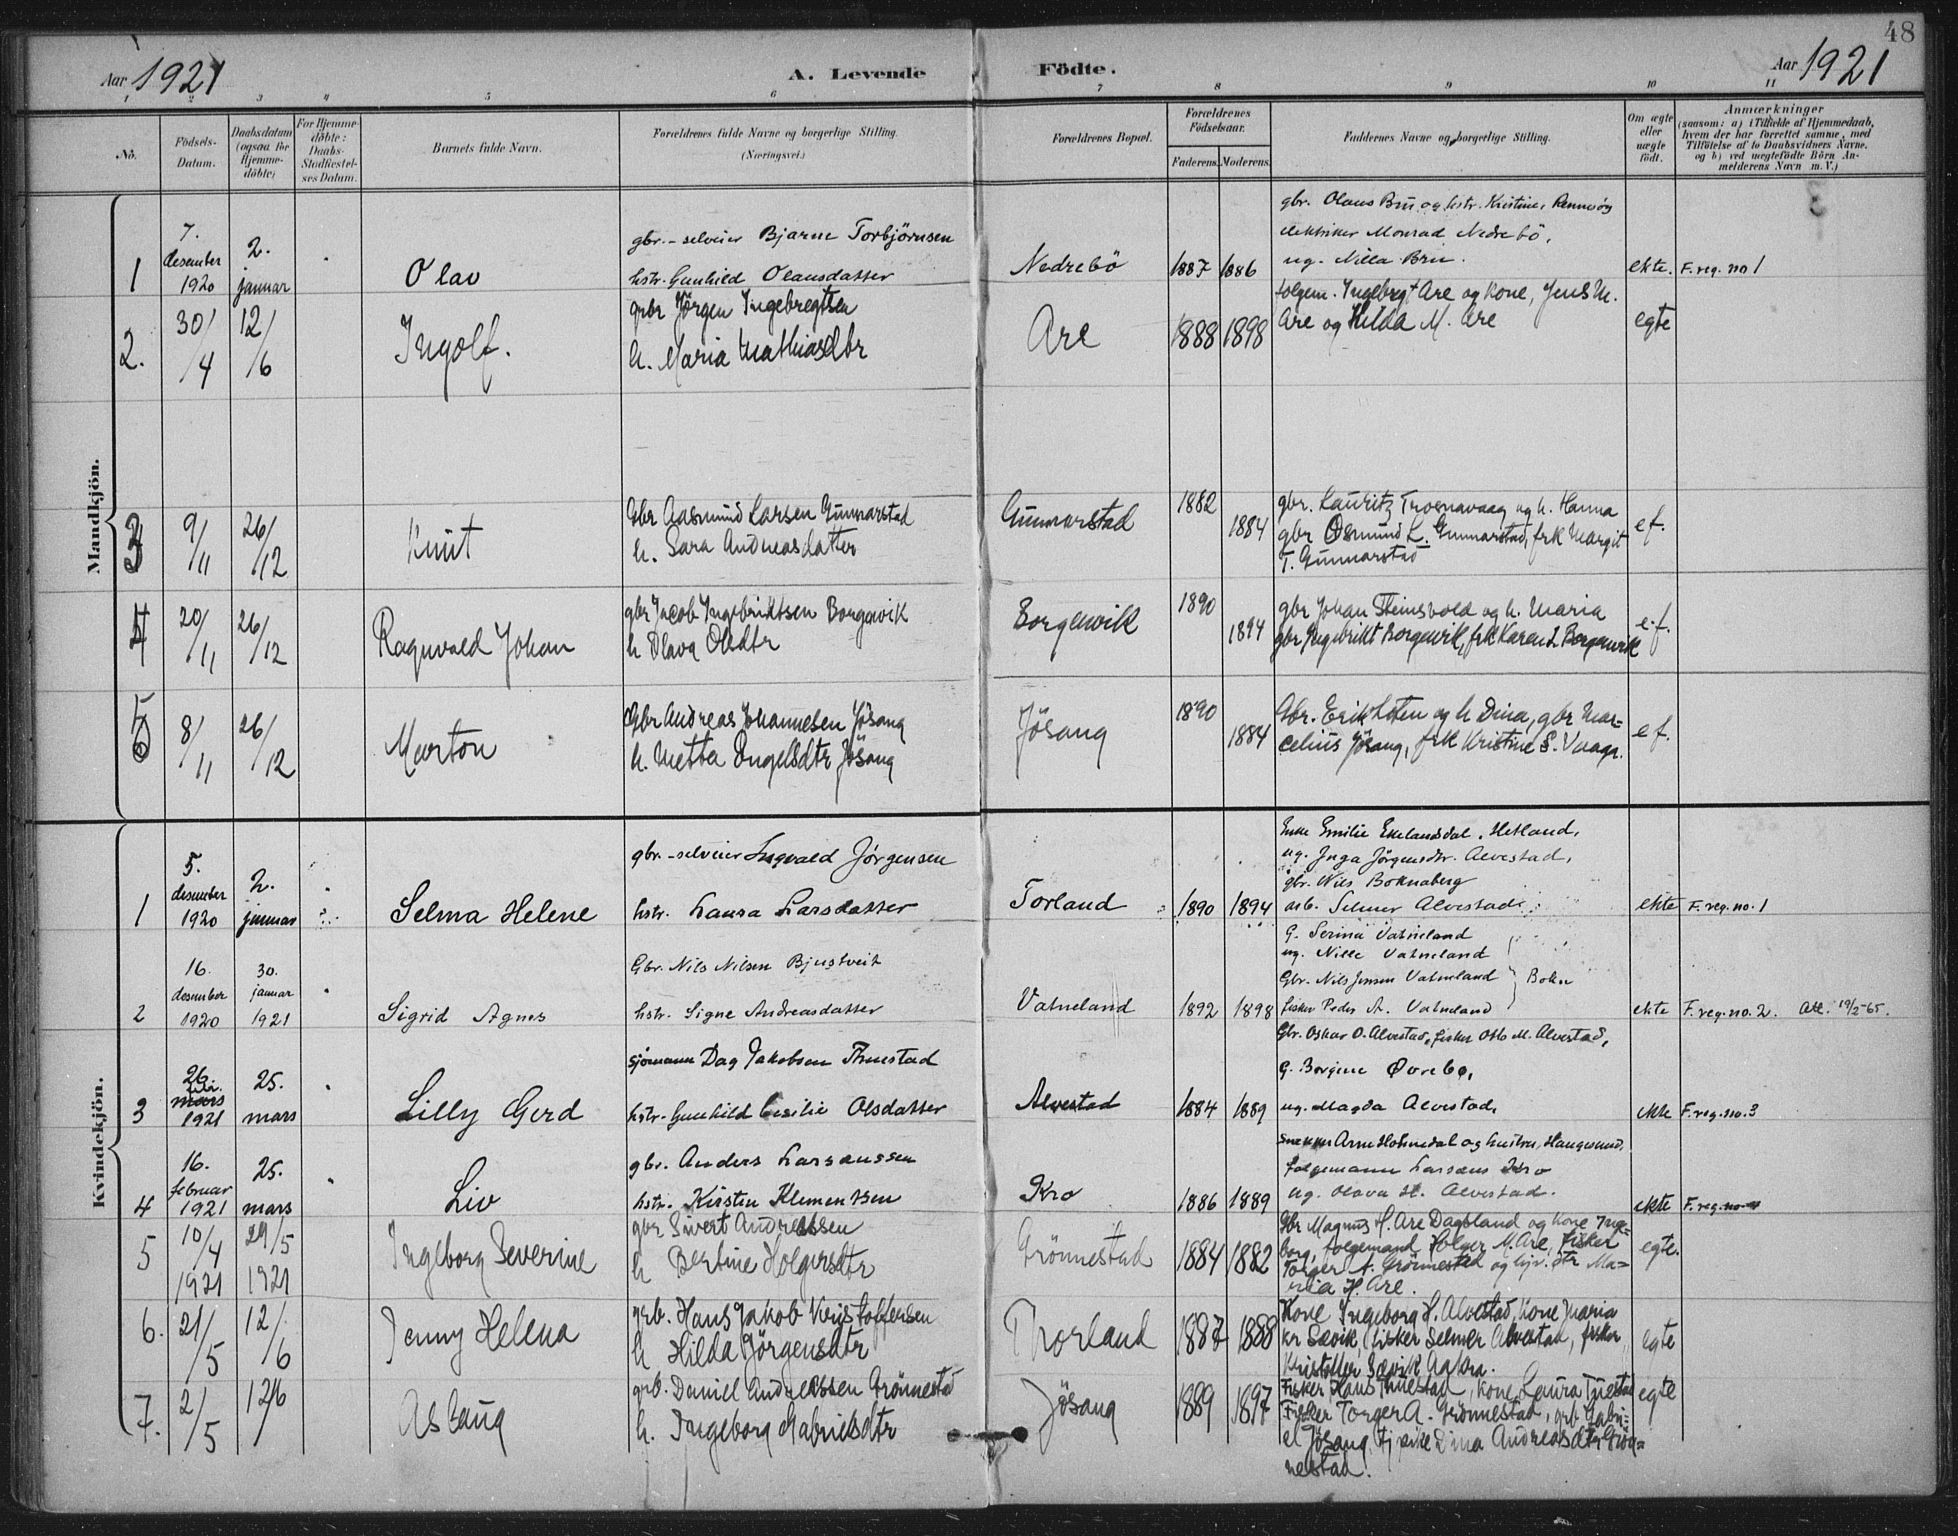 48
Aar 1921 A. Levende Födte. Aar 1921
1 2 3 4 5 6 7 8 9 10 11
No.
Födsels-
Datum.
Daabsdatum
(ogsaa for
Hjemme-
döbte)
For Hjemme-
döbte:
Daabs-
Stadfæstel-
ses Datum.
Barnets fulde Navn.
Forældrenes fulde Navne og borgerlige Stilling.
(Næringsvei.)
Forældrenes Bopæl.
Forældrenes
Födselsaar.
Faderens. Moderens.
Faddernes Navne og borgerlige Stilling.
Om ægte
eller
uægte
födt.
Anmærkninger
(saasom: a) i Tilfælde af Hjemmedaab,
hvem der har forrettet samme, med
Tilföielse af to Daabsvidners Navne.
og b) ved uægtefödte Börn An-
melderens Navn m. V.)
Mandkjön.
1
7.
desember
1920
2.
januar
Olav
gbr. - selveier Bjarne Torbjörnsen
hstr. Gunhild Olausdatter
Nedrebö
1887 1886
gbr. Olaus Bru og hstr. Kristine, Rennesöy
elektriker Monrad Nedrebö,
ug. Nilla Bru.
ekte. F. reg. no 1
2.
30/
/4
12/
/6
Ingolf.
gbr Jörgen Ingebregtsen
h. Maria Mathiasdtr
Are
1888 1898
folgem. Ingebregt Are og kone, Jens M.
Are og Hilda M. Are
egte
3
9/
/11
26/
/12
Knut
Gbr Aasmund Larsen Gunnarstad
h. Sara Andreasdatter
Gunnarstad
1882
1884
gbr. Lauritz Trosnavaag og h. Hanna
gbr Osmund L. Gunnarstad, frk Margit
T. Gunnarstad
ef.
4
20/
/11
26/
/12
Ragnvald Johan
gbr Jacob Ingebriktsen Borgenvik
h Olava Olsdtr
Borgenvik
1890
1894
gbr Johan Steinsvold og h. Maria
gbr Ingebrikt Borgenvik, frk Karen L Borgenvik
e.f.
5
8/
/11
26/
/12
Marton
Gbr Andreas Johannesen Jösang
h. Metta Engelsdtr Jösang
Jösang
1890
1884
Gbr. Erik Loten og h Dina, gbr Mar-
celius Jösang, frk Kristine S. Vaaga.
ef.
Kvindekjön.
1
5.
desember
1920
2.
januar
Selma Helene
gbr. - selveier Ingvald Jörgensen
hstr. Laura Larsdatter
Torland
1890 1894
Enke Emilie Ekelandsdal, Hetland,
ug. Inga Jörgensdtr. Alvestad,
gbr. Nils Boknaberg
arb. Selmer Alvestad
ekte F. reg. no. 1
2
16.
desember
1920
30.
januar
1921
Sigrid Agnes
Gbr. Nils Nilsen Bjustveit
hstr. Signe Andreasdatter
Vatneland
1892 1898
G. Serine Vatneland
ug. Nille Vatneland
Gbr. Nils Jensen Vatneland
fisker Peder A. Vatneland
Bokn
ekte F. reg. no. 2. Att. 19/2-65.
3
26.
febr.
mars
1921
25.
mars
Lilly Gerd
sjömann Dag Jakobsen Thuestad
hstr. Gunhild Cecilie Olsdatter
Alvestad
1884 1889
Gbr. Oskar O. Alvestad, fisker Otto M. Alvestad,
G. Borgine Övrebö,
ug. Magda Alvestad,
ekte F. reg. no. 3
4
16.
februar
1921
25.
mars
Liv
gbr. Anders Larsanssen
hstr. Kirsten Klementsen
Kro
1886 1889
Arne Holmedal og hustru, Haugesund,
folgemann Larsans Kro
ug. Olava H. Alvestad.
ekte F. reg. no 4
5
10/
/4
1921
29/5
1921
Ingeborg Severine
gbr Sivert Andreassen
h Bertine Holgersdtr
Grönnestad
1884 1882
Gbr Magnus H. Are Dagsland og kone Inge-
borg, folgemand Holger M. Are, fisker
Torger A. Grönnestad og tjv. dtr Ma-
ria H. Are.
egte.
6.
21/
/5
12/
/6
Jenny Helena
grb. Hans Jakob Kristoffersen
h Hilda Jörgensdtr
Thorland
1887 1888
Kone Ingeborg H. Alvestad, Kone Maria
kr Sævik, fisker Selmer Alvestad, fisker
Kristoffer Sævik Aakra.
egte
7.
2/
/5
12/6
Aslaug
grb. Daniel Andreassen Grönnestad
h. Ingeborg Gabrielsdtr
Jösang
1889 1897
Fisker Hans Thuestad, kone Laura Tuestad
Fisker Torger A. Grönnestad, grb Gabri-
el Jösang, tj pike Dina Andreasdtr Grön-
nestad.
egte